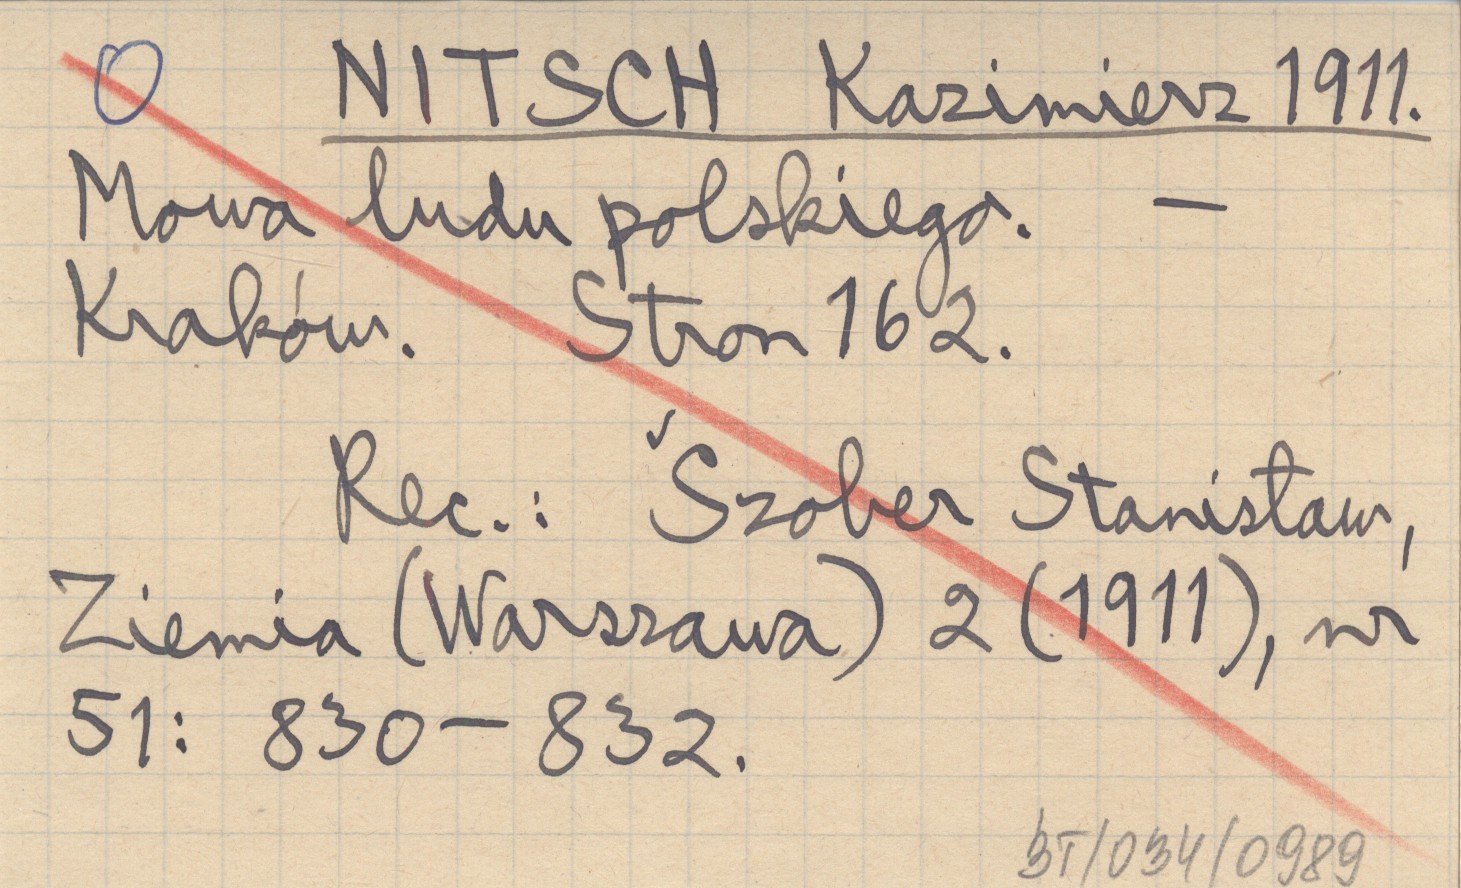 O NITSCH Kazimierz 1911.
Mowa ludu polskiego. —
Kraków. Stron 162.
Rec.: Szober Stanisław,
Ziemia (Warszawa) 2 (1911), nr
51: 830—832.
BT/034/0989